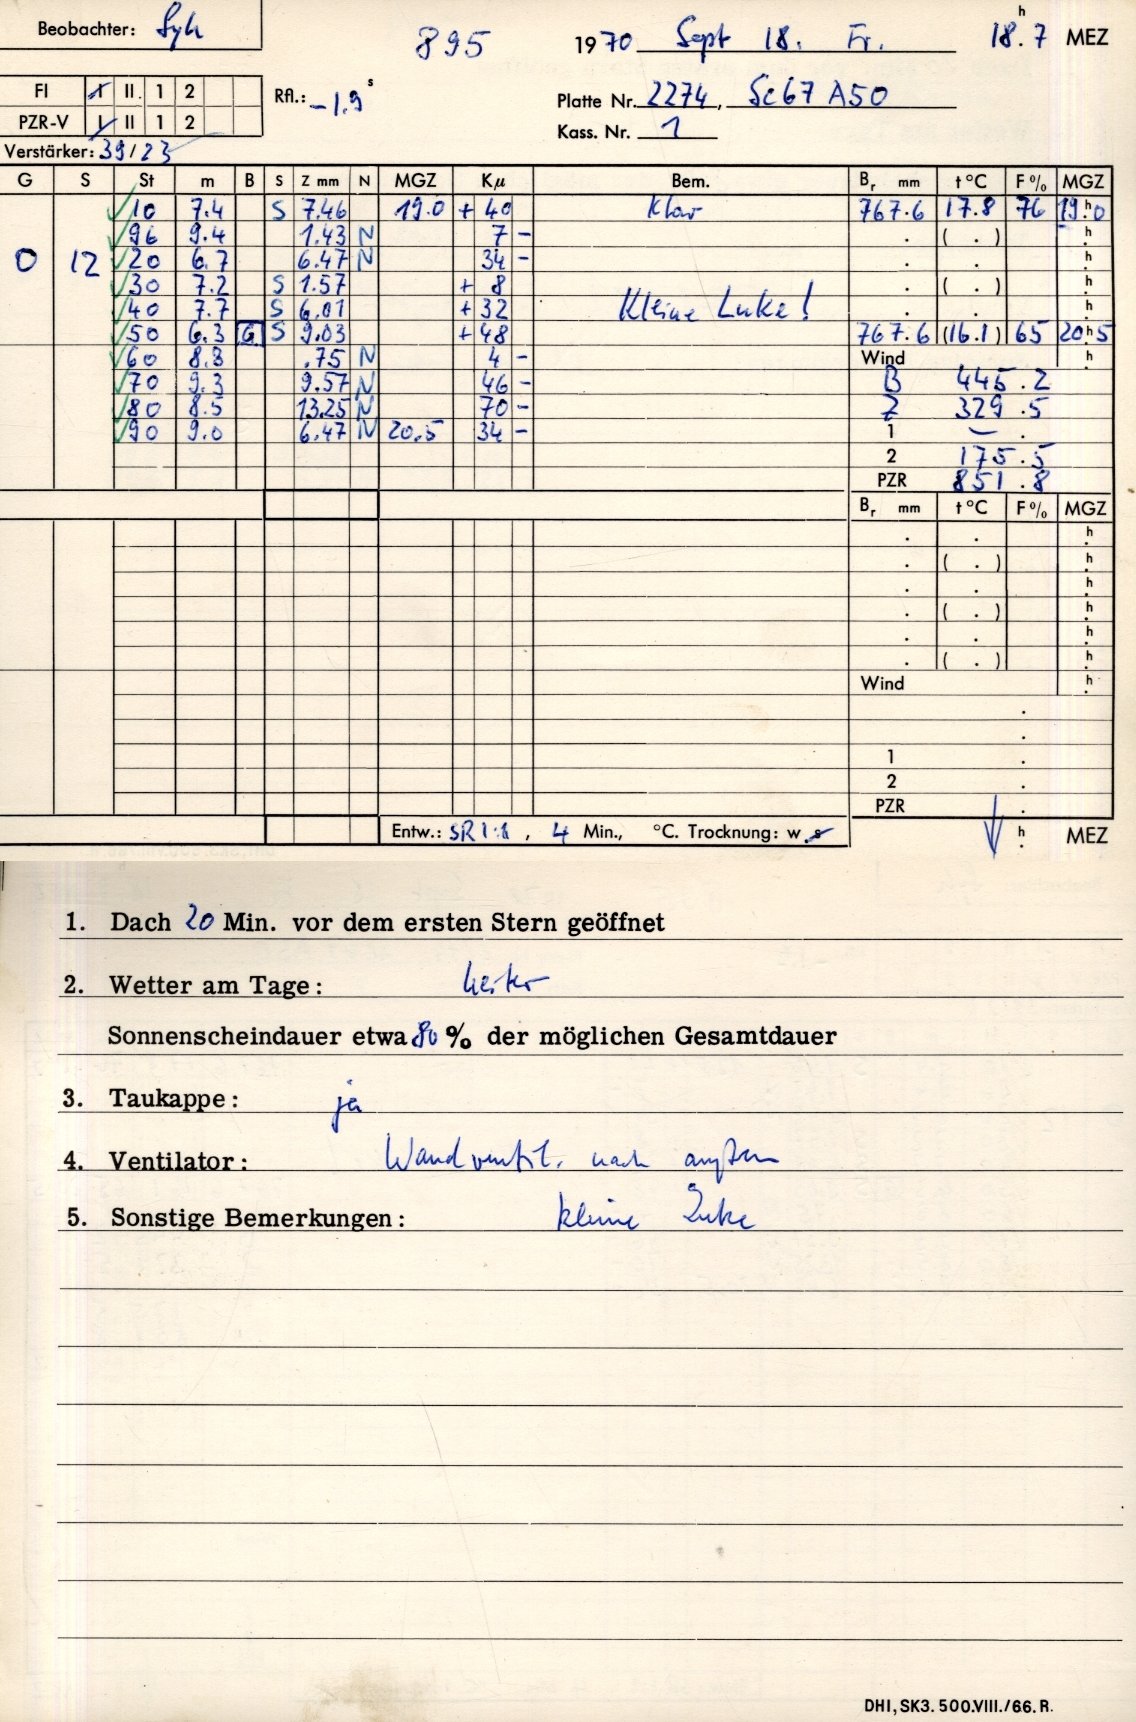 Beobachter: Syh
895
1970 Sept 18. Fr. 18.h7 MEZ
FI I II. 1 2
PZR-V I II 1 2
Rfl.: -1.9 s
Platte Nr. 2274, Sc67 A50
Kass. Nr. 1
Verstärker: 39/23
G S St m B S Z mm N MGZ Kμ Bem. Br mm t°C F% MGZ
10 7.4 S 7.46 19.0 + 40 Klar 767.6 17.8 76 19.h0
96 9.4 1.43 N 7 - . ( . ) h
0 12 20 6.7 6.47 N 34 - . . h
30 7.2 S 1.57 + 8 . ( . ) h
40 7.7 S 6.01 + 32 Kleine Luke! . . h
50 6.3 G S 9.03 + 48 767.6 (16.1) 65 20.h5
60 8.8 .75 N 4 - Wind h
70 9.3 9.57 N 46 - B 445.2
80 8.5 13.25 N 70 - Z 329.5
90 9.0 6.47 N 20.5 34 - 1 – .
2 175.5
PZR 851.8
Br mm t°C F% MGZ
. . h
. ( . ) h
. . h
. ( . ) h
. . h
. ( . ) h
Wind h
.
.
1 .
2 .
PZR .
Entw.: SR 1:1, 4 Min., °C. Trocknung: w.s h MEZ
1. Dach 20 Min. vor dem ersten Stern geöffnet
2. Wetter am Tage: heiter
Sonnenscheindauer etwa 80 % der möglichen Gesamtdauer
3. Taukappe: ja
4. Ventilator: Wandventil. nach außen
5. Sonstige Bemerkungen: kleine Luke
DHI, SK3. 500.VIII./66. R.